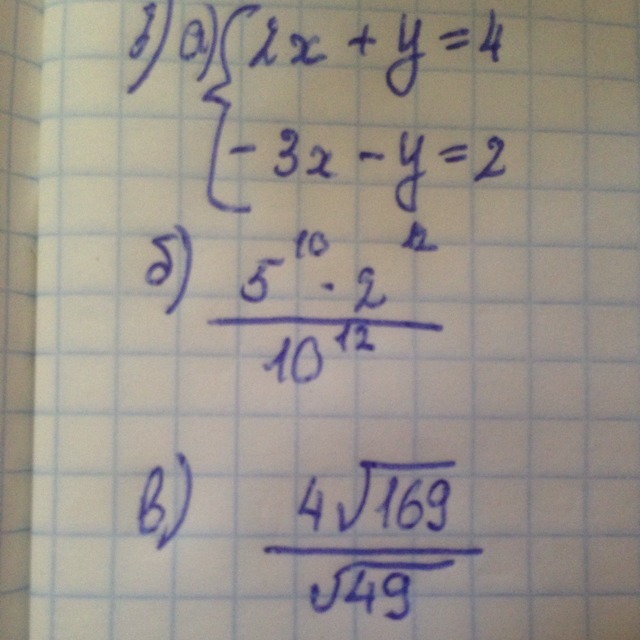 1) а) { 2x + y = 4
- 3x - y = 2
б) 5^10 · 2^12
10^12
в) 4√169
√49